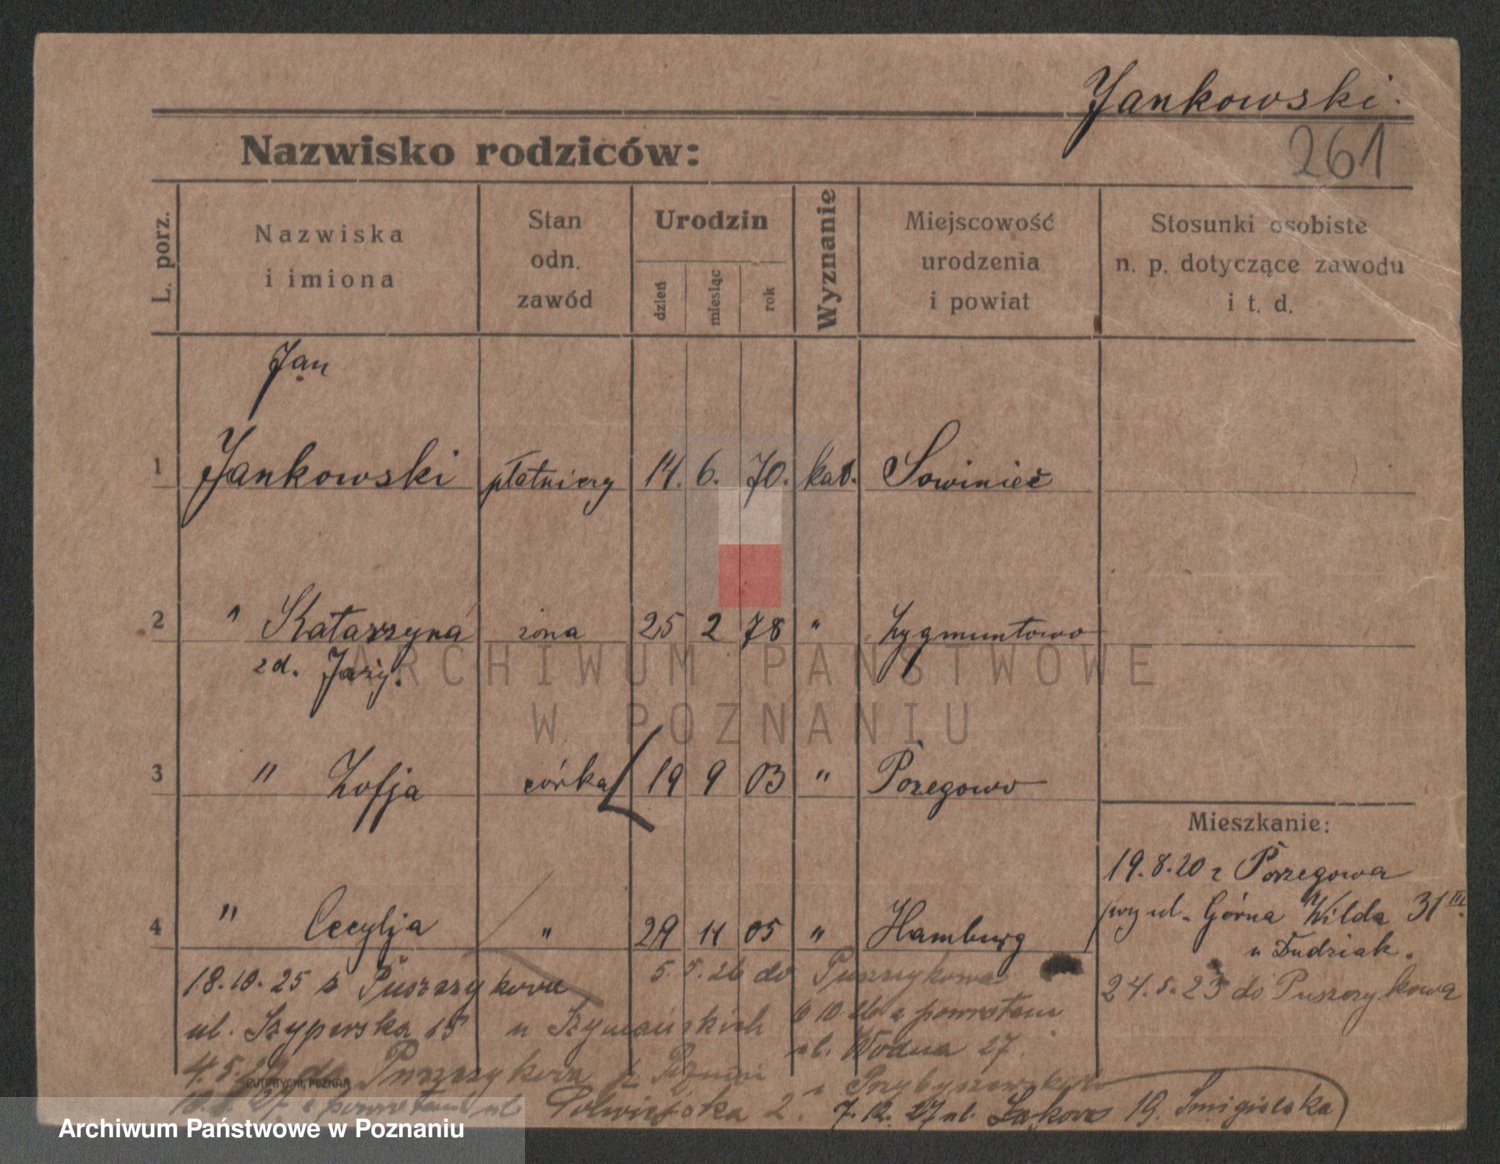 Jankowski.
261
Nazwisko rodziców:
L. porz.
Nazwiska
i imiona
Stan
odn.
zawód
Urodzin
dzień
miesiąc
rok
Wyznanie
Miejscowość
urodzenia
i powiat
Stosunki osobiste
n. p. dotyczące zawodu
i t. d.
Jan
1 Jankowski płatniczy 14. 6. 70. kat. Sowiniec
2 " Katarzyna żona 25 2 78 " Zygmuntowo
zd. Jaży.
3 " Zofja córka 19 9 03 " Pożegowo
4 " Cecylja " 29 11 05 " Hamburg
Mieszkanie:
19.8.20 z Pożegowa
ul. Górna Wilda 31 III.
u Dudziak.
24.5.23 do Puszczykowa
18.10.25 z Puszczykowa
ul. Szyperska 15 u Szymańskich
5. 5. 26 do Puszczykowa
10 26 z powrotem
ul. Wodna 27.
4.5.27 do Puszczykowa
27 z powrotem ul. 2.
7.12.27 ul. 19. Śmigielska
ARCHIWUM PAŃSTWOWE
W POZNANIU
Archiwum Państwowe w Poznaniu